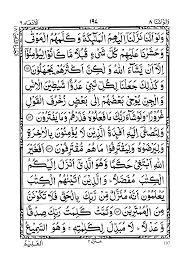 ولواننا ٨ ١٩٤ الانعام ٦
وَلَوْ اَنَّنَا نَزَّلْنَاۤ اِلَيْهِمُ الْمَلٰٓئِكَةَ وَكَلَّمَهُمُ الْمَوْتٰى
وَحَشَرْنَا عَلَيْهِمْ كُلَّ شَیْءٍ قُبُلًا مَّا كَانُوْا لِيُؤْمِنُوْۤا
اِلَّاۤ اَنْ يَّشَآءَ اللّٰهُ وَلٰكِنَّ اَكْثَرَهُمْ يَجْهَلُوْنَ
وَكَذٰلِكَ جَعَلْنَا لِكُلِّ نَبِیٍّ عَدُوًّا شَيٰطِيْنَ الْاِنْسِ
وَالْجِنِّ يُوْحِیْ بَعْضُهُمْ اِلٰى بَعْضٍ زُخْرُفَ الْقَوْلِ
غُرُوْرًا وَلَوْ شَآءَ رَبُّكَ مَا فَعَلُوْهُ فَذَرْهُمْ وَمَا يَفْتَرُوْنَ
وَلِتَصْغٰۤى اِلَيْهِ اَفْـِٕدَةُ الَّذِيْنَ لَا يُؤْمِنُوْنَ بِالْاٰخِرَةِ
وَلِيَرْضَوْهُ وَلِيَقْتَرِفُوْا مَا هُمْ مُّقْتَرِفُوْنَ اَفَغَيْرَ
اللّٰهِ اَبْتَغِیْ حَكَمًا وَّهُوَ الَّذِیْۤ اَنْزَلَ اِلَيْكُمُ
الْكِتٰبَ مُفَصَّلًا وَالَّذِيْنَ اٰتَيْنٰهُمُ الْكِتٰبَ
يَعْلَمُوْنَ اَنَّهٗ مُنَزَّلٌ مِّنْ رَّبِّكَ بِالْحَقِّ فَلَا تَكُوْنَنَّ
مِنَ الْمُمْتَرِيْنَ وَتَمَّتْ كَلِمَتُ رَبِّكَ صِدْقًا
وَّعَدْلًا لَا مُبَدِّلَ لِكَلِمٰتِهٖ وَهُوَ السَّمِيْعُ